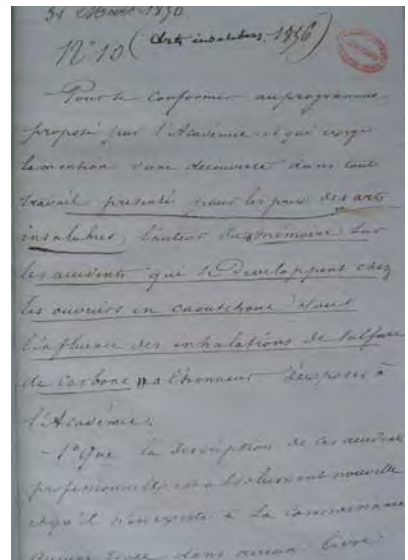 31 Mars 1856
N° 10 (Arts insalubres. 1856)
Pour se conformer au programme
proposé par l'Académie et qui exige
la mention d'une découverte dans tout
travail présenté pour les prix des arts
insalubres, l'auteur du mémoire sur
les accidents qui se développent chez
les ouvriers en caoutchouc sous
l'influence des inhalations de sulfure
de carbone a l'honneur d'exposer à
l'Académie.
1° Que la description de ces accidents
professionnels est absolument nouvelle
et qu'il n'en existe à sa connaissance
aucune trace dans aucun livre